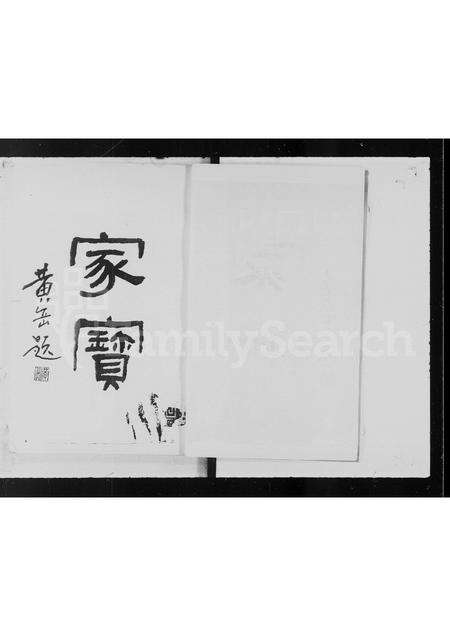 家寶
黄岳題
FamilySearch